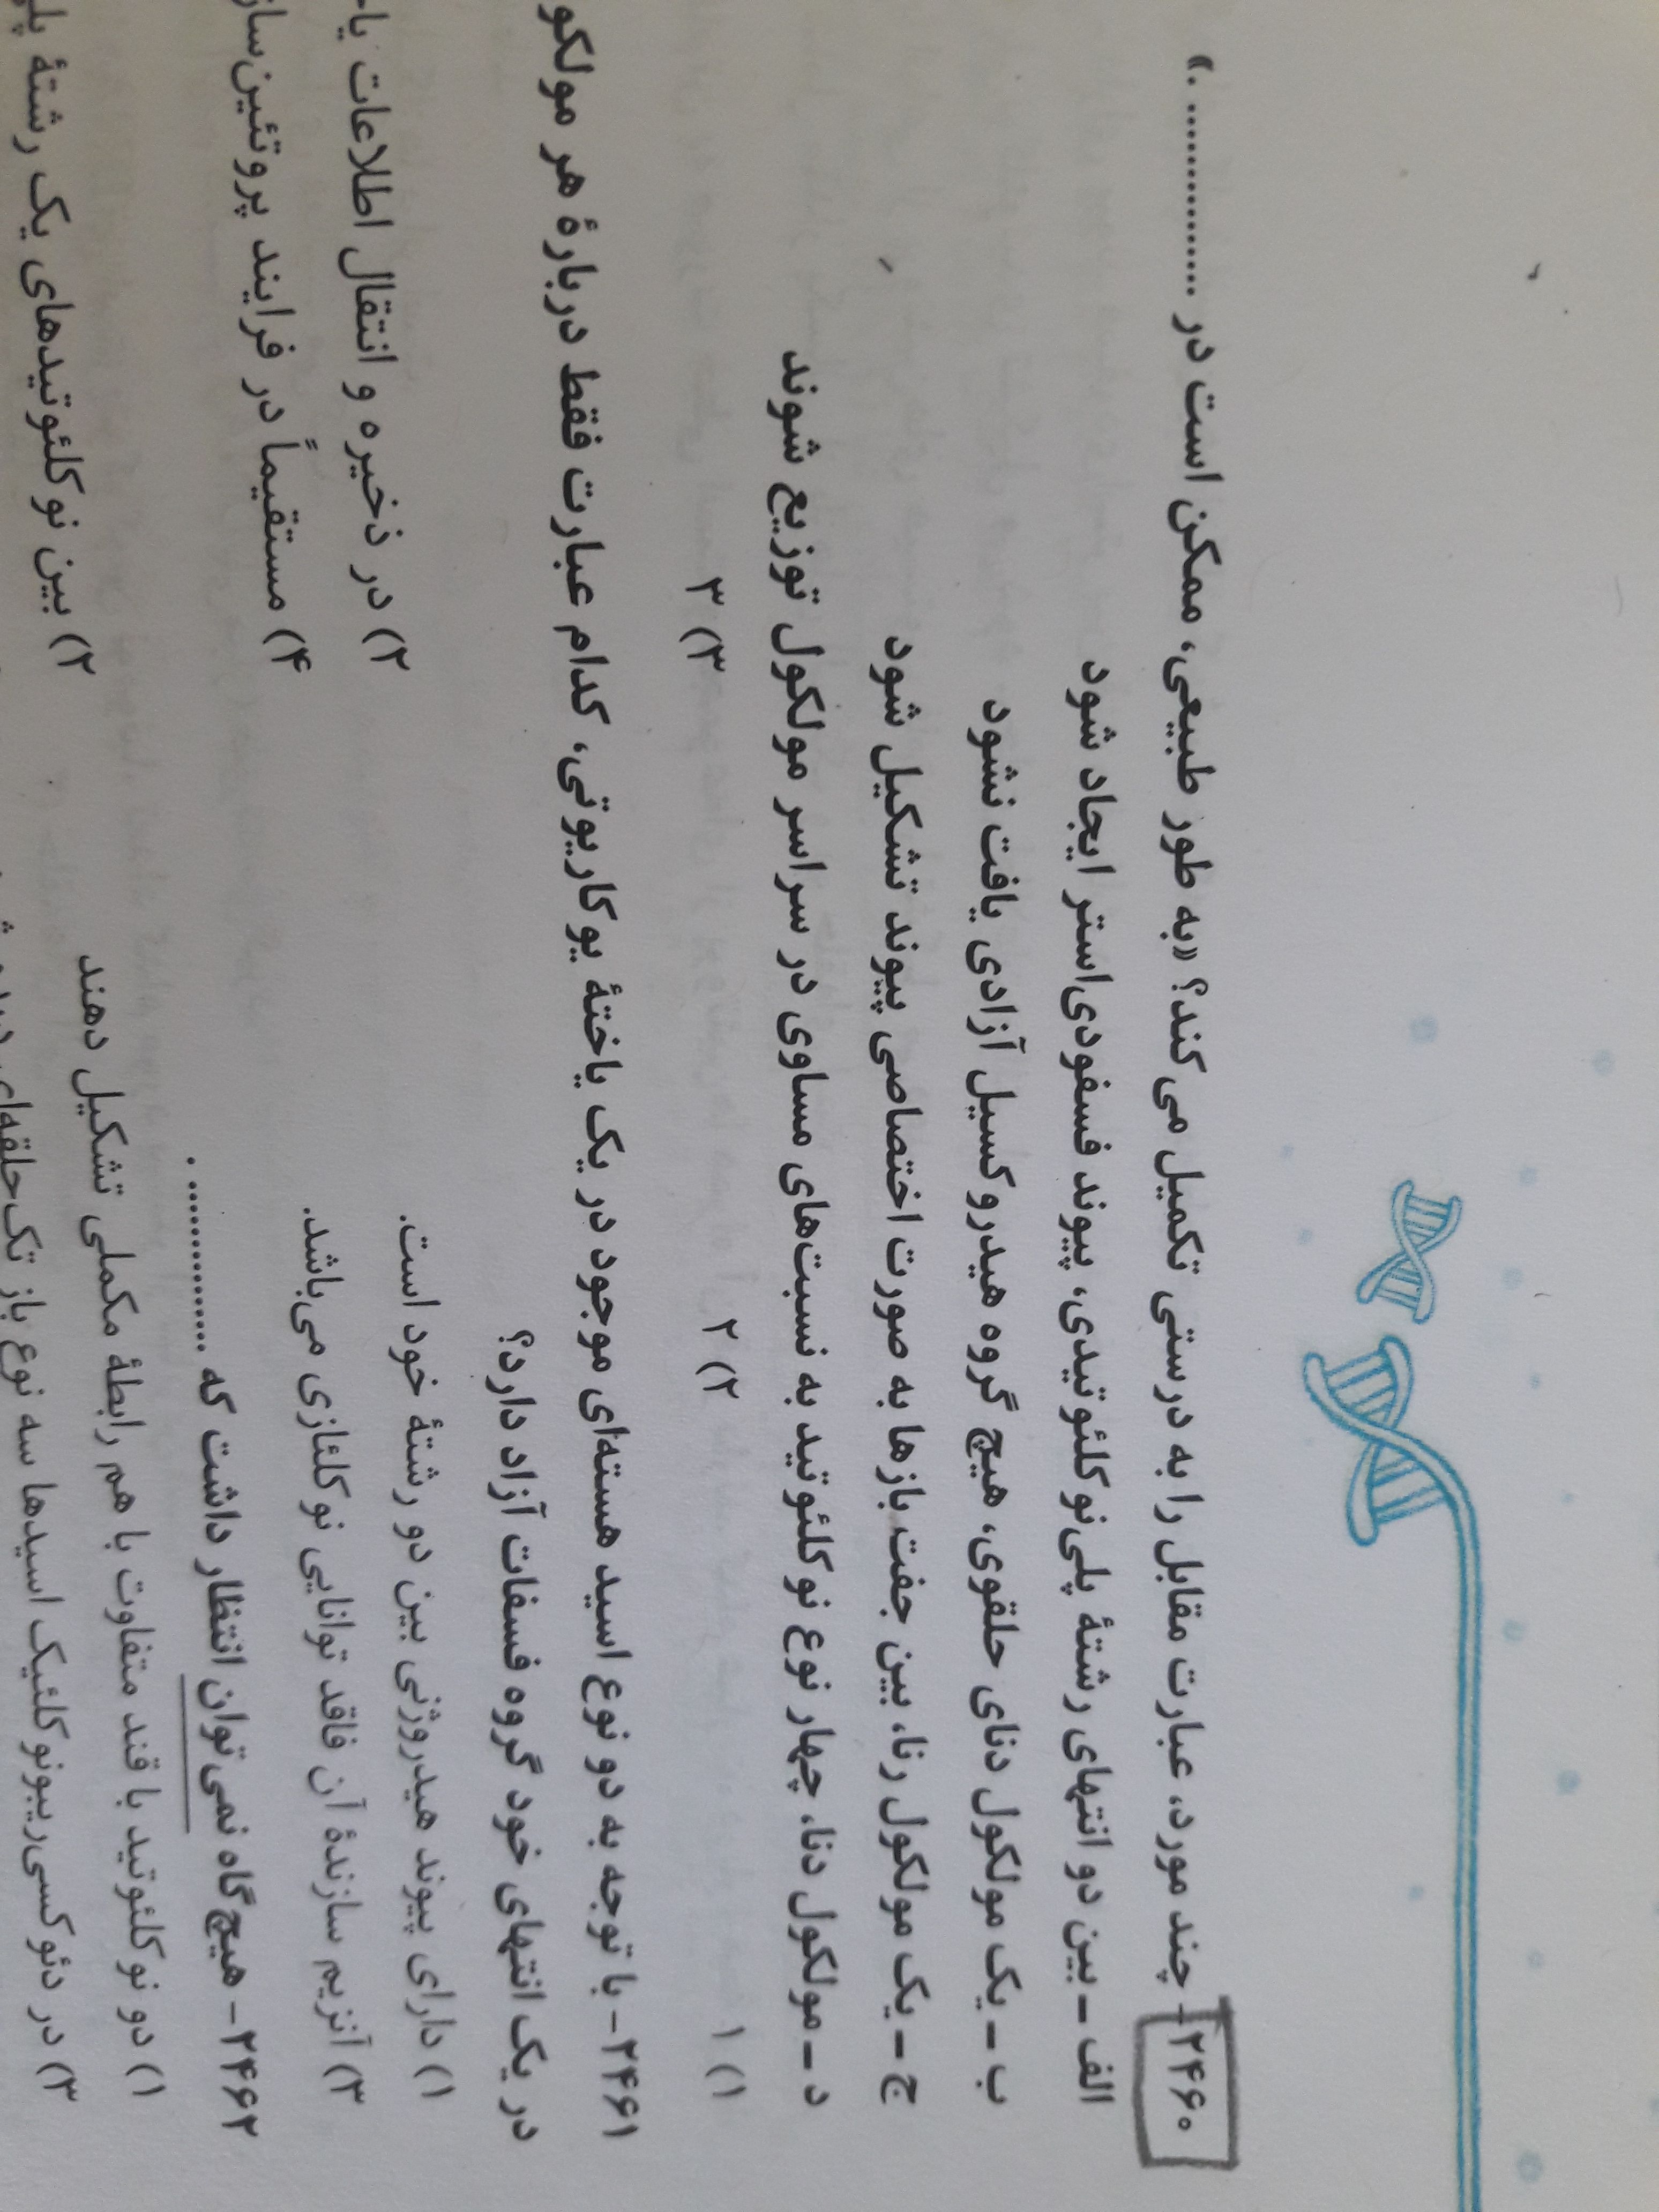 ۲۴۶۰- چند مورد، عبارت مقابل را به درستی تکمیل می‌کند؟ «به طور طبیعی، ممکن است در .............. .»
الف ـ بین دو انتهای رشتهٔ پلی‌نوکلئوتیدی، پیوند فسفودی‌استر ایجاد شود
ب ـ یک مولکول دنای حلقوی، هیچ گروه هیدروکسیل آزادی یافت نشود
ج ـ یک مولکول رنا، بین جفت بازها به صورت اختصاصی پیوند تشکیل شود
د ـ مولکول دنا، چهار نوع نوکلئوتید به نسبت‌های مساوی در سراسر مولکول توزیع شوند
۱) ۱ ۲) ۲ ۳) ۳
۲۴۶۱- با توجه به دو نوع اسید هسته‌ای موجود در یک یاختهٔ یوکاریوتی، کدام عبارت فقط دربارهٔ هر
در یک انتهای خود گروه فسفات آزاد دارد؟
۱) دارای پیوند هیدروژنی بین دو رشتهٔ خود است. ۲) در ذخیره و انتقال اطلاعات
۳) آنزیم سازندهٔ آن فاقد توانایی نوکلئازی می‌باشد. ۴) مستقیماً در فرایند
۲۴۶۲- هیچ‌گاه نمی‌توان انتظار داشت که .............. .
۱) دو نوکلئوتید با قند متفاوت با هم رابطهٔ مکملی تشکیل دهند ۲) بین نوکلئوتیدهای یک رشتهٔ
۳) در دئوکسی‌ریبونوکلئیک اسیدها سه نوع باز